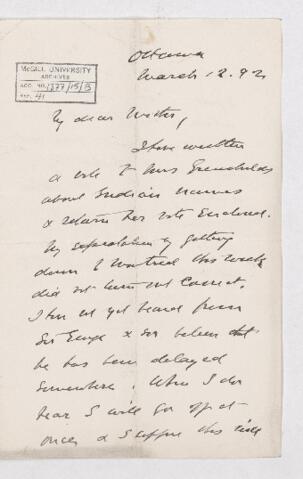 McGILL UNIVERSITY
ARCHIVES
ACC. NO. 1377/15/3
REF. 41
Ottawa
March 12. 92
My dear
I have written
a note to Mrs Greenshields
about Indian names
& return her note enclosed.
My expectation of getting
down to Montreal this week
did not turn out correct.
I have not yet heard from
Sir George & so believe that
he has been delayed
somewhere. When I do
hear I will go off at
once & I suppose this will